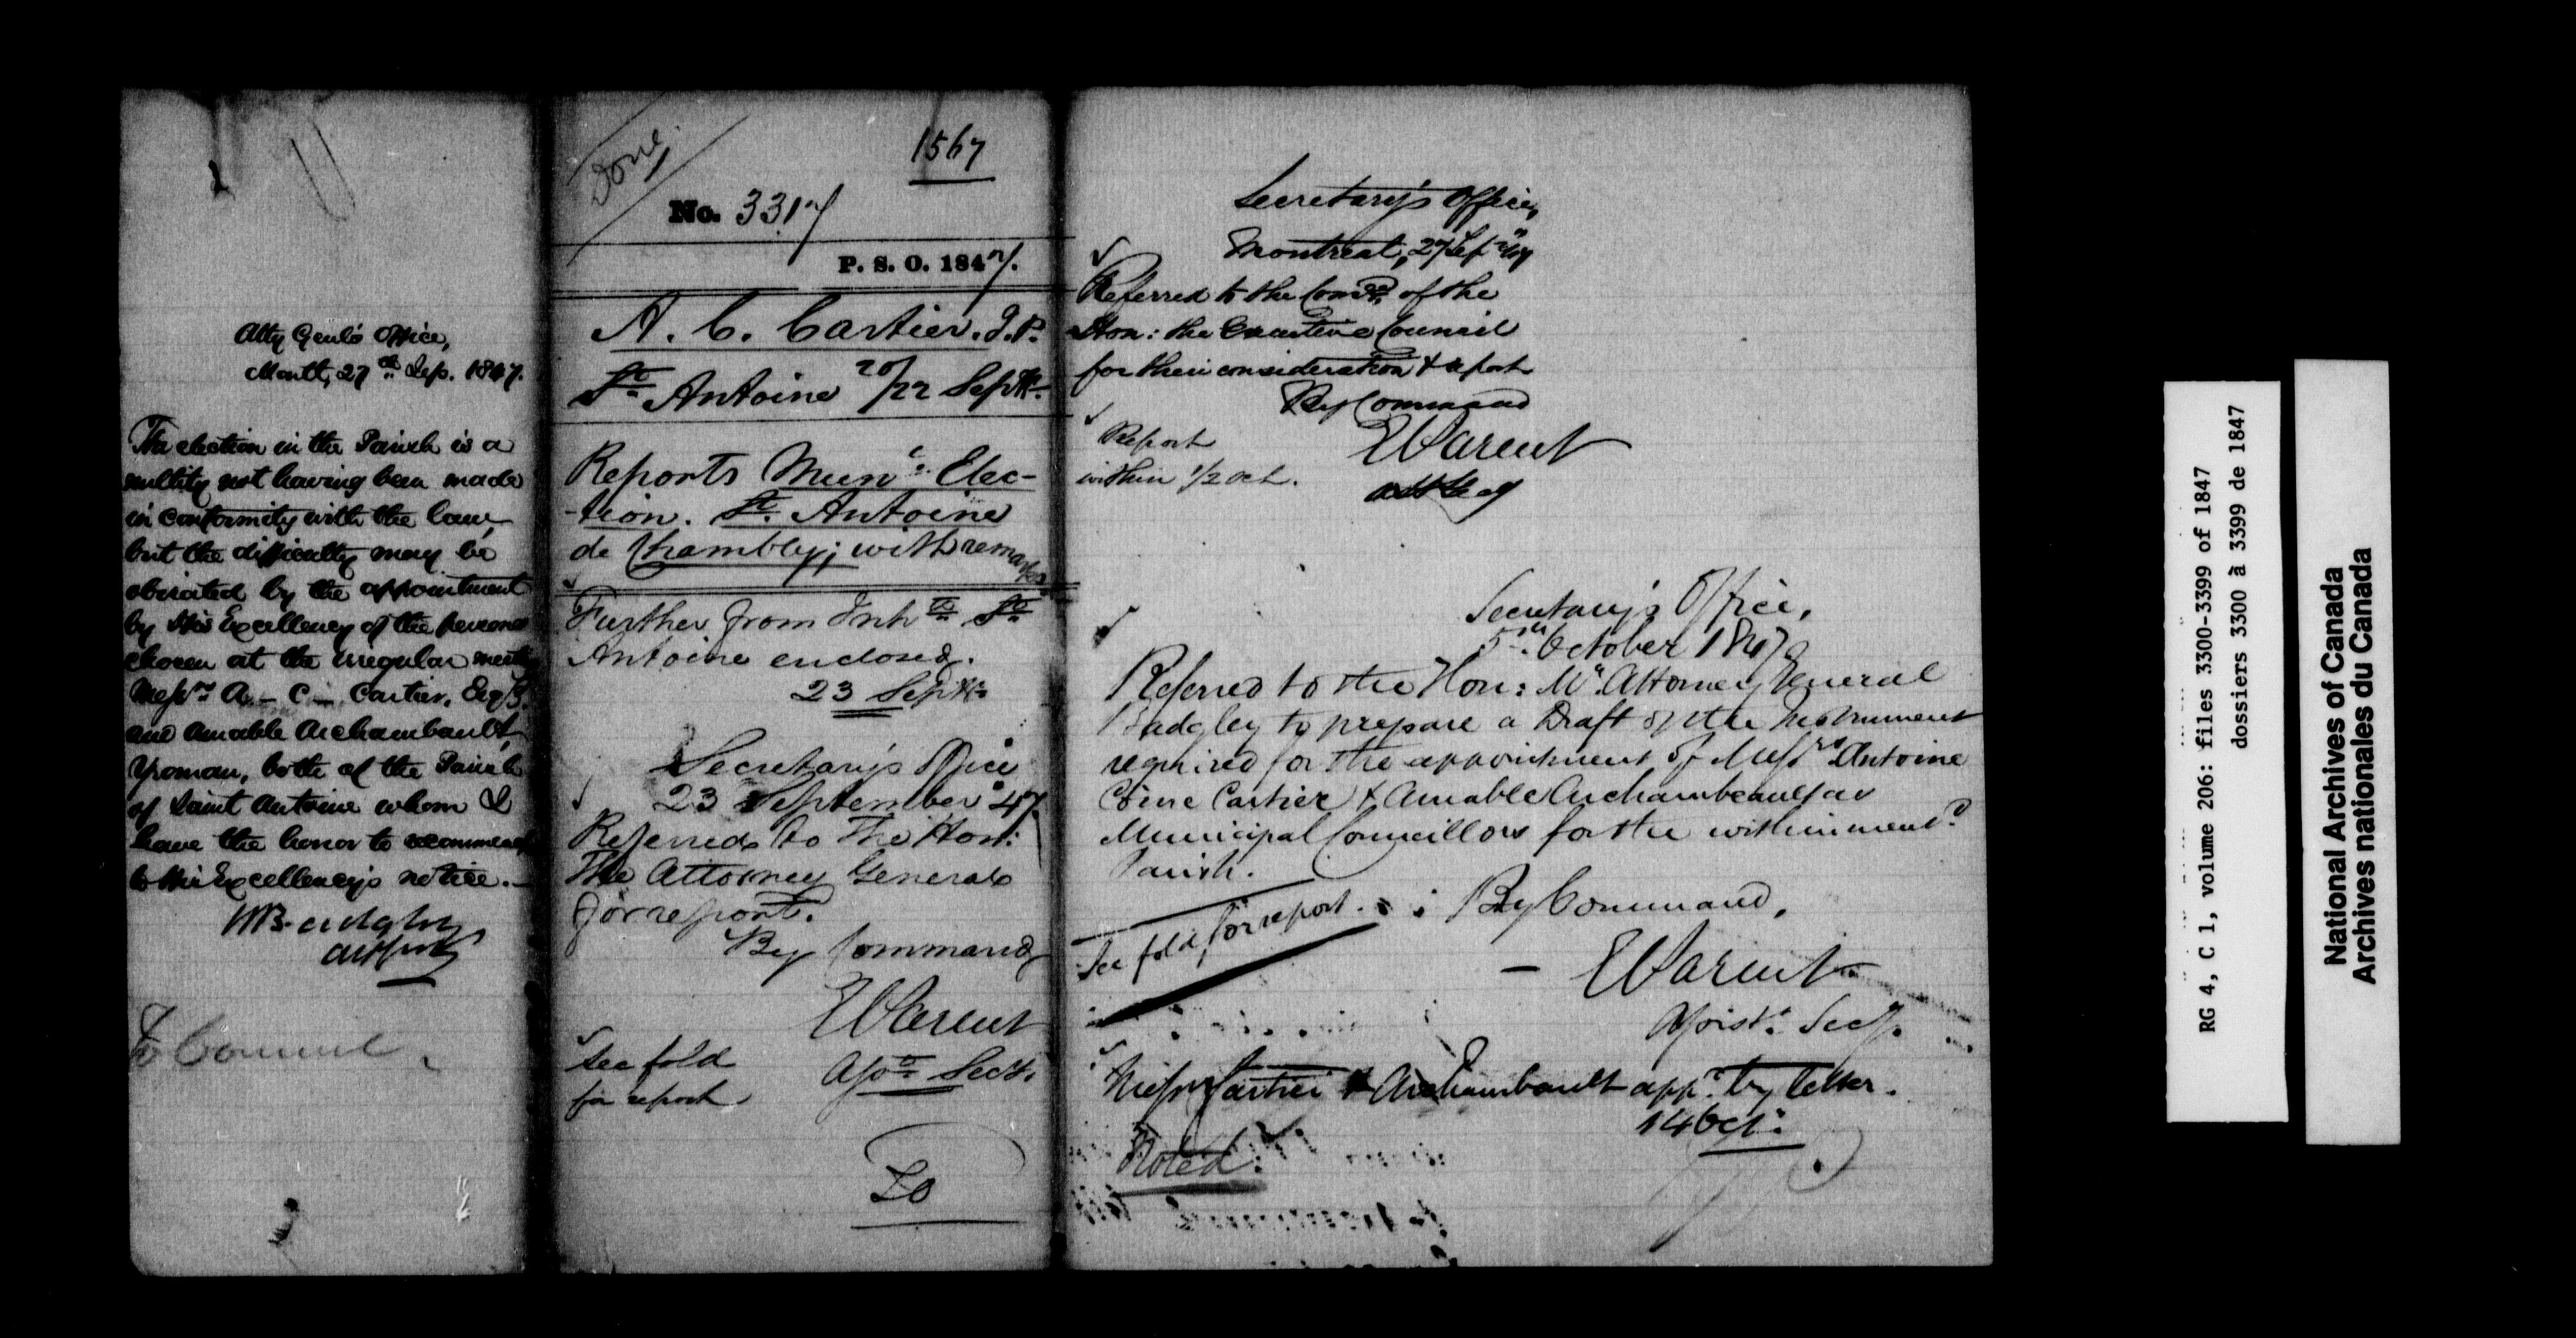 Atty Genl's Office,
Montl, 27th Sep. 1847.
The election in the Parish is a
nullity not having been made
in conformity with the law,
but the difficulty may be
obviated by the appointment
by His Excellency of the persons
chosen at the irregular meeting
Messrs A. - C - Cartier, Esqr.
and Amable Archambault,
Yeoman, both of the Parish
of Saint Antoine whom I
have the honor to recommend
to his Excellency's notice. -
W Badgley
Att Genl
To Council
Done
1567
No. 3317
P. S. O. 1847.
A. C. Cartier. J. P.
St Antoine 20/22 Septr.
Reports Munl. Elec-
-tion. St. Antoine
de Chambly; with remarks
Further from Inhts St
Antoine enclosed.
23 Septr.
Secretary's Office
23 September 47.
Referred to The Hon:
The Attorney General
for report.
By Command
E Parent
Asst. Secy.
See fold
for report
Secretary's Office,
Montreal, 27 Sepr 47
Referred to the Comee. of the
Hon: the Executive Council
for their consideration & report
By Command
E Parent
Asst Secy
Report
within 1/2 Oct.
Secretary's Office,
5th. October 1847
Referred to the Hon: Mr. Attorney General
Badgley to prepare a Draft of the Instrument
required for the appointment of Messrs Antoine
Côme Cartier & Amable Archambeault as
Municipal Councillors for the within mend.
Parish.
By Command,
See fold for report.
- E Parent
Assist. Secy.
Messrs Cartier & Archambault appd. by letter.
14 Oct:
Noted.
RG 4, C 1, volume 206: files 3300-3399 of 1847
dossiers 3300 à 3399 de 1847
National Archives of Canada
Archives nationales du Canada